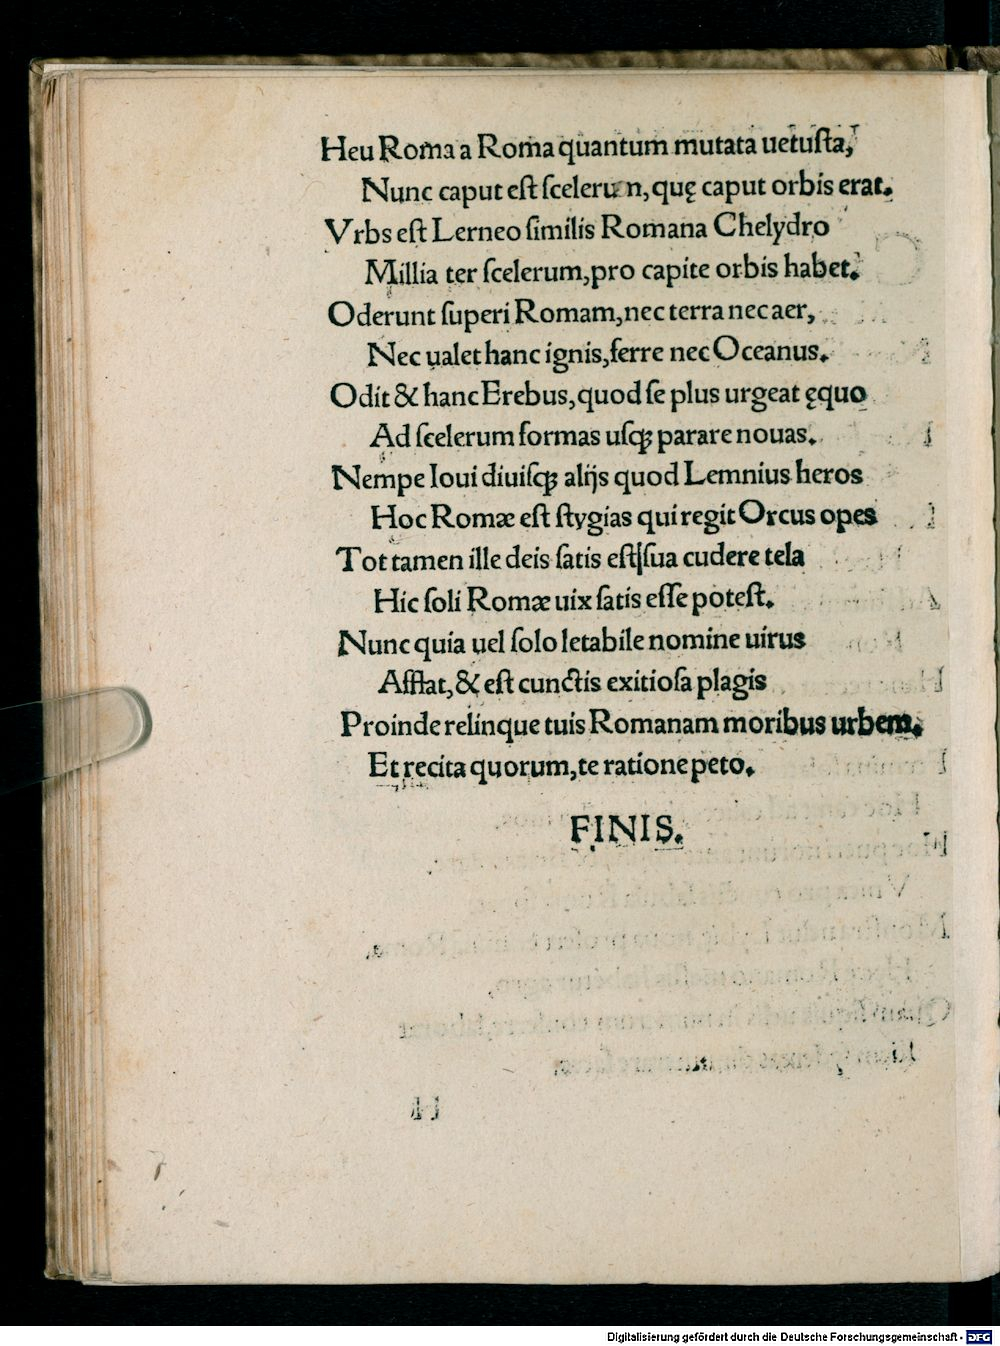 Heu Roma a Roma quantum mutata uetusta,
Nunc caput est sceleru n, quę caput orbis erat.
Vrbs est Lerneo similis Romana Chelydro
Millia ter scelerum, pro capite orbis habet.
Oderunt superi Romam, nec terra nec aer,
Nec ualet hanc ignis, ferre nec Oceanus.
Odit & hanc Erebus, quod se plus urgeat ęquo
Ad scelerum formas usqꝫ parare nouas.
Nempe Ioui diuisqꝫ alijs quod Lemnius heros
Hoc Romæ est stygias qui regit Orcus opes
Tot tamen ille deis satis est|sua cudere tela
Hic soli Romæ uix satis esse potest.
Nunc quia uel solo letabile nomine uirus
Afflat, & est cunctis exitiosa plagis
Proinde relinque tuis Romanam moribus urbem.
Et recita quorum, te ratione peto.
FINIS.
Digitalisierung gefördert durch die Deutsche Forschungsgemeinschaft - DFG